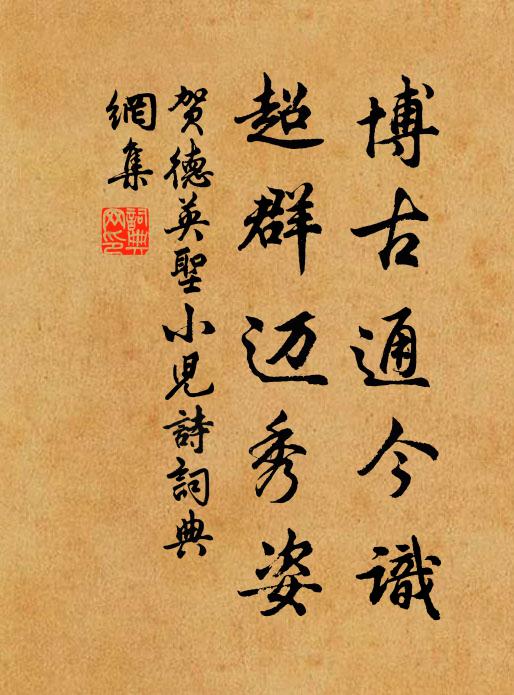 博古通今識
超群迈秀姿
贺德英聖小児詩詞典
網集
詞典網印